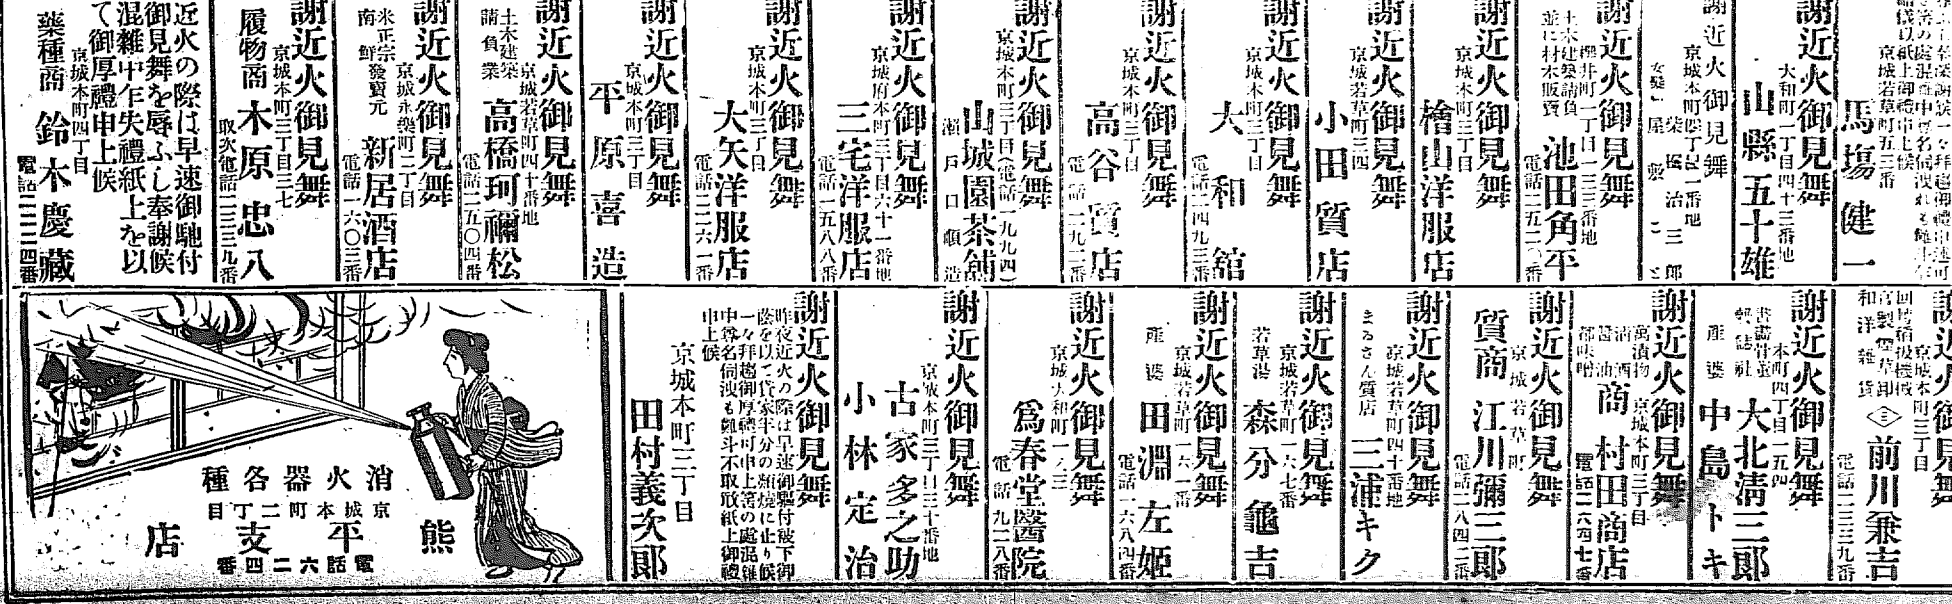 京城若草町五三番
馬場健一
謝近火御見舞
大和町一丁目四十三番地
山縣五十雄
謝近火御見舞
謝近火御見舞
櫻井町一丁目一三三番地
土木建築請負
並に材木販賣
池田角平
謝近火御見舞
京城本町三丁目
檜山洋服店
謝近火御見舞
京城若草町三四
小田質店
謝近火御見舞
京城本町三丁目
大和館
電話二四九三番
謝近火御見舞
京城本町三丁目
高谷質店
電話二九一二番
謝近火御見舞
京城本町三丁目(電話一九九四)
山城園茶舖
瀬戸口順造
謝近火御見舞
京城府本町三丁目六十一番地
三宅洋服店
電話一五八八番
謝近火御見舞
京城本町三丁目
大矢洋服店
電話二二六一番
謝近火御見舞
京城本町三丁目
平原喜造
謝近火御見舞
京城若草町四十番地
土木建築
請負業
高橋珂禰松
電話二五〇四番
謝近火御見舞
京城永樂町二丁目
米正宗
南鮮
發賣元
新居酒店
電話一六〇三番
謝近火御見舞
京城本町三丁目三七
履物商 木原忠八
取次電話二三三九番
近火の際は早速御馳付
御見舞を辱ふし奉謝候
混雜中乍失禮紙上を以
て御厚禮申上候
京城本町四丁目
藥種商 鈴木慶藏
電話二二二四番
謝近火御見舞
京城本町三丁目
和洋雜貨
前川兼吉
電話二三三九番
謝近火御見舞
本町四丁目一五四
大北淸三郎
產婆 中島トキ
謝近火御見舞
京城本町三丁目
萬漬物
清酒
醬油
都味噌
商 村田商店
電話二六四七番
謝近火御見舞
京城若草町
質商 江川彌三郎
電話二八四二番
謝近火御見舞
京城若草町四十番地
まるさん質店
三浦キク
謝近火御見舞
京城若草町一六七番
若草湯 森分龜吉
謝近火御見舞
京城若草町一六一番
產婆 田淵左姬
電話一六八四番
謝近火御見舞
京城大和町一ノ三
爲春堂醫院
電話九二八番
謝近火御見舞
京城本町三丁目三十番地
古家多之助
小林定治
謝近火御見舞
昨夜近火の際は早速御驅付被下御
蔭を以て貸家半分の類燒に止り候
一々拜趨御厚禮可申上筈の處混雜
中尊名伺洩も難斗不取敢紙上御禮
申上候
京城本町三丁目
田村義次郎
消火器各種
京城本町二丁目
熊平支店
電話六二四番